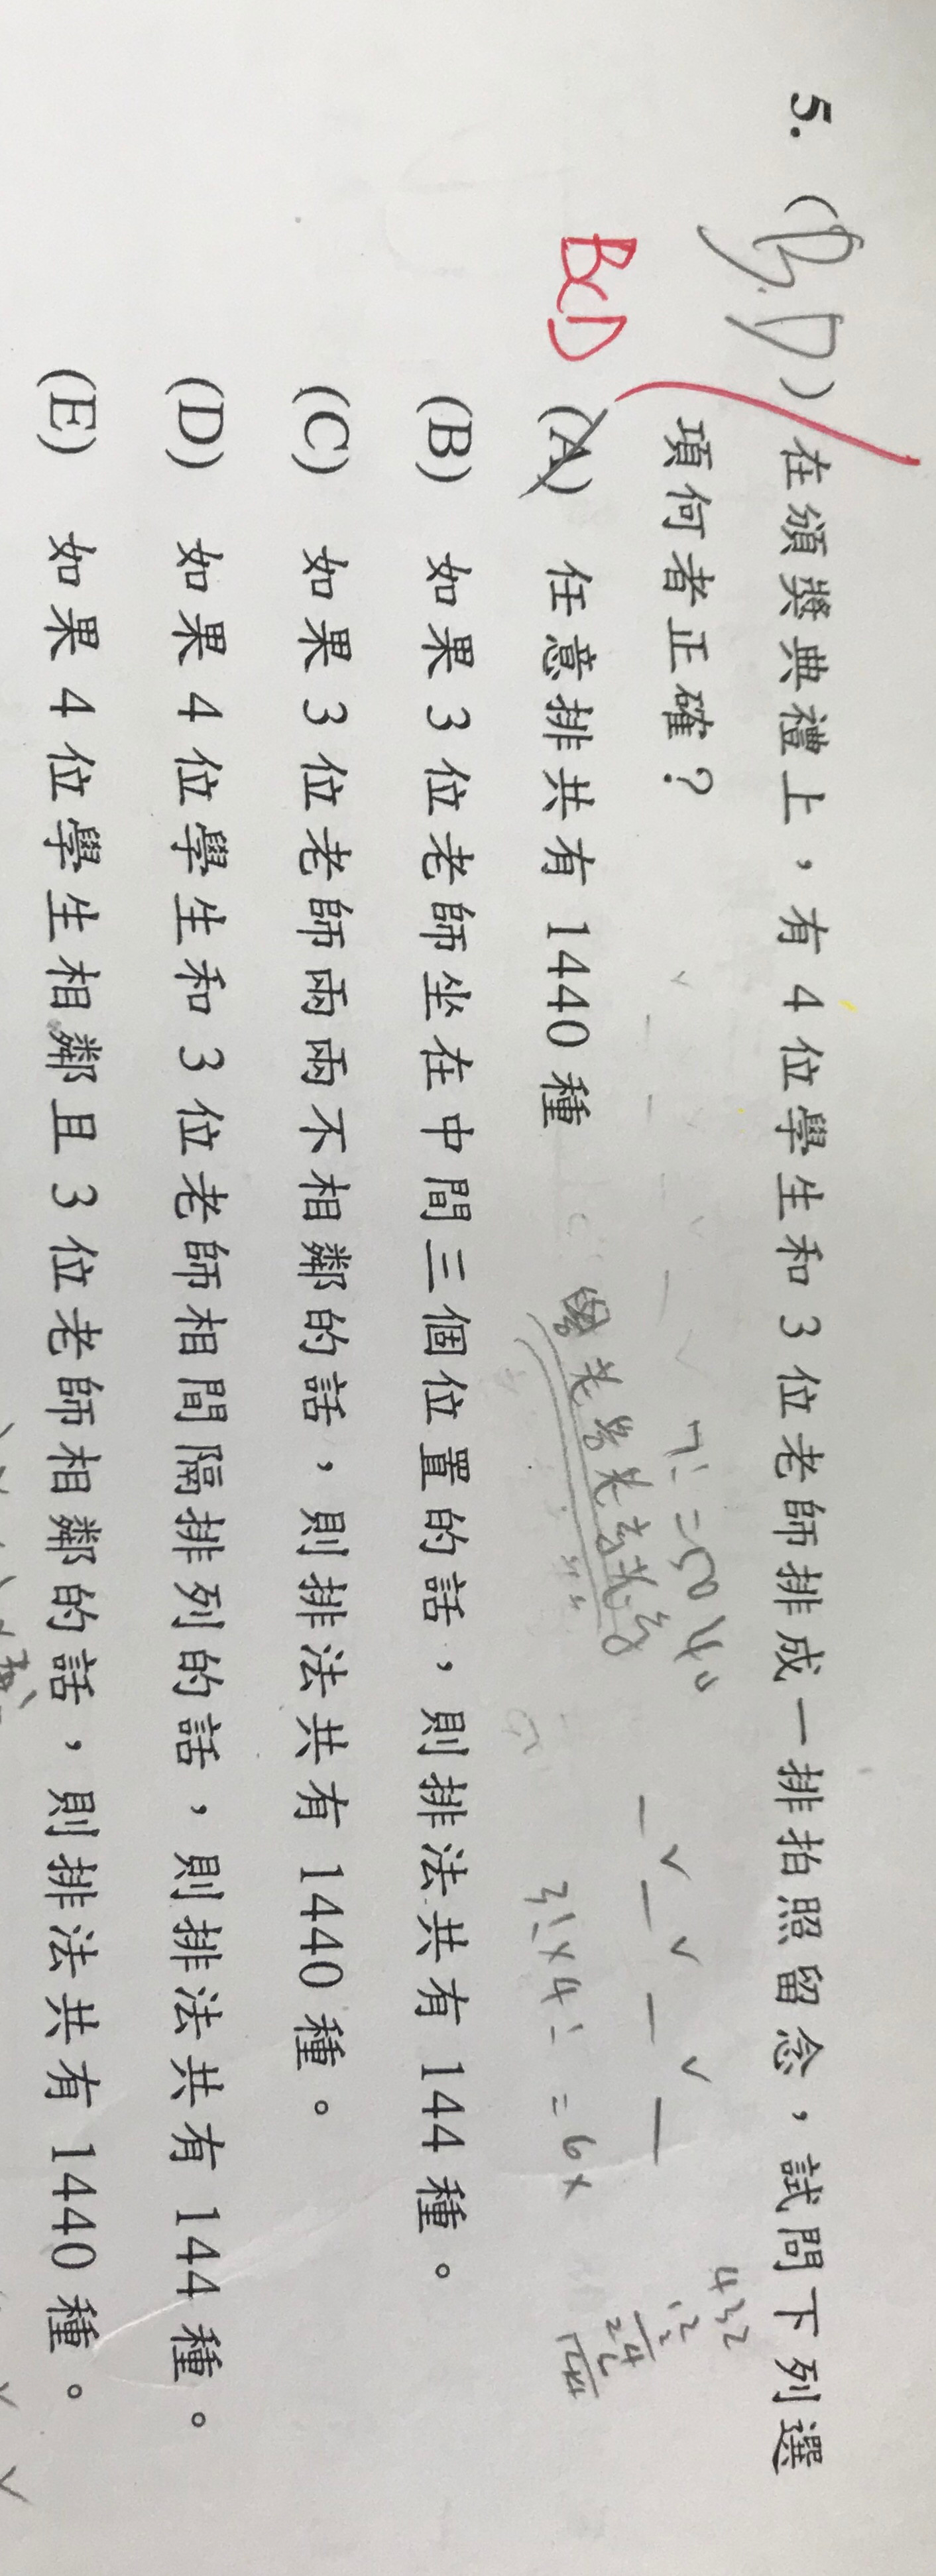 5. (B.D) 在頒獎典禮上，有 4 位學生和 3 位老師排成一排拍照留念，試問下列選
項何者正確？
BCD
(A) 任意排共有 1440 種
(B) 如果 3 位老師坐在中間三個位置的話，則排法共有 144 種。
(C) 如果 3 位老師兩兩不相鄰的話，則排法共有 1440 種。
(D) 如果 4 位學生和 3 位老師相間隔排列的話，則排法共有 144 種。
(E) 如果 4 位學生相鄰且 3 位老師相鄰的話，則排法共有 1440 種。
7! = 5040
3! x 4! = 6x
432
12
24
6
144